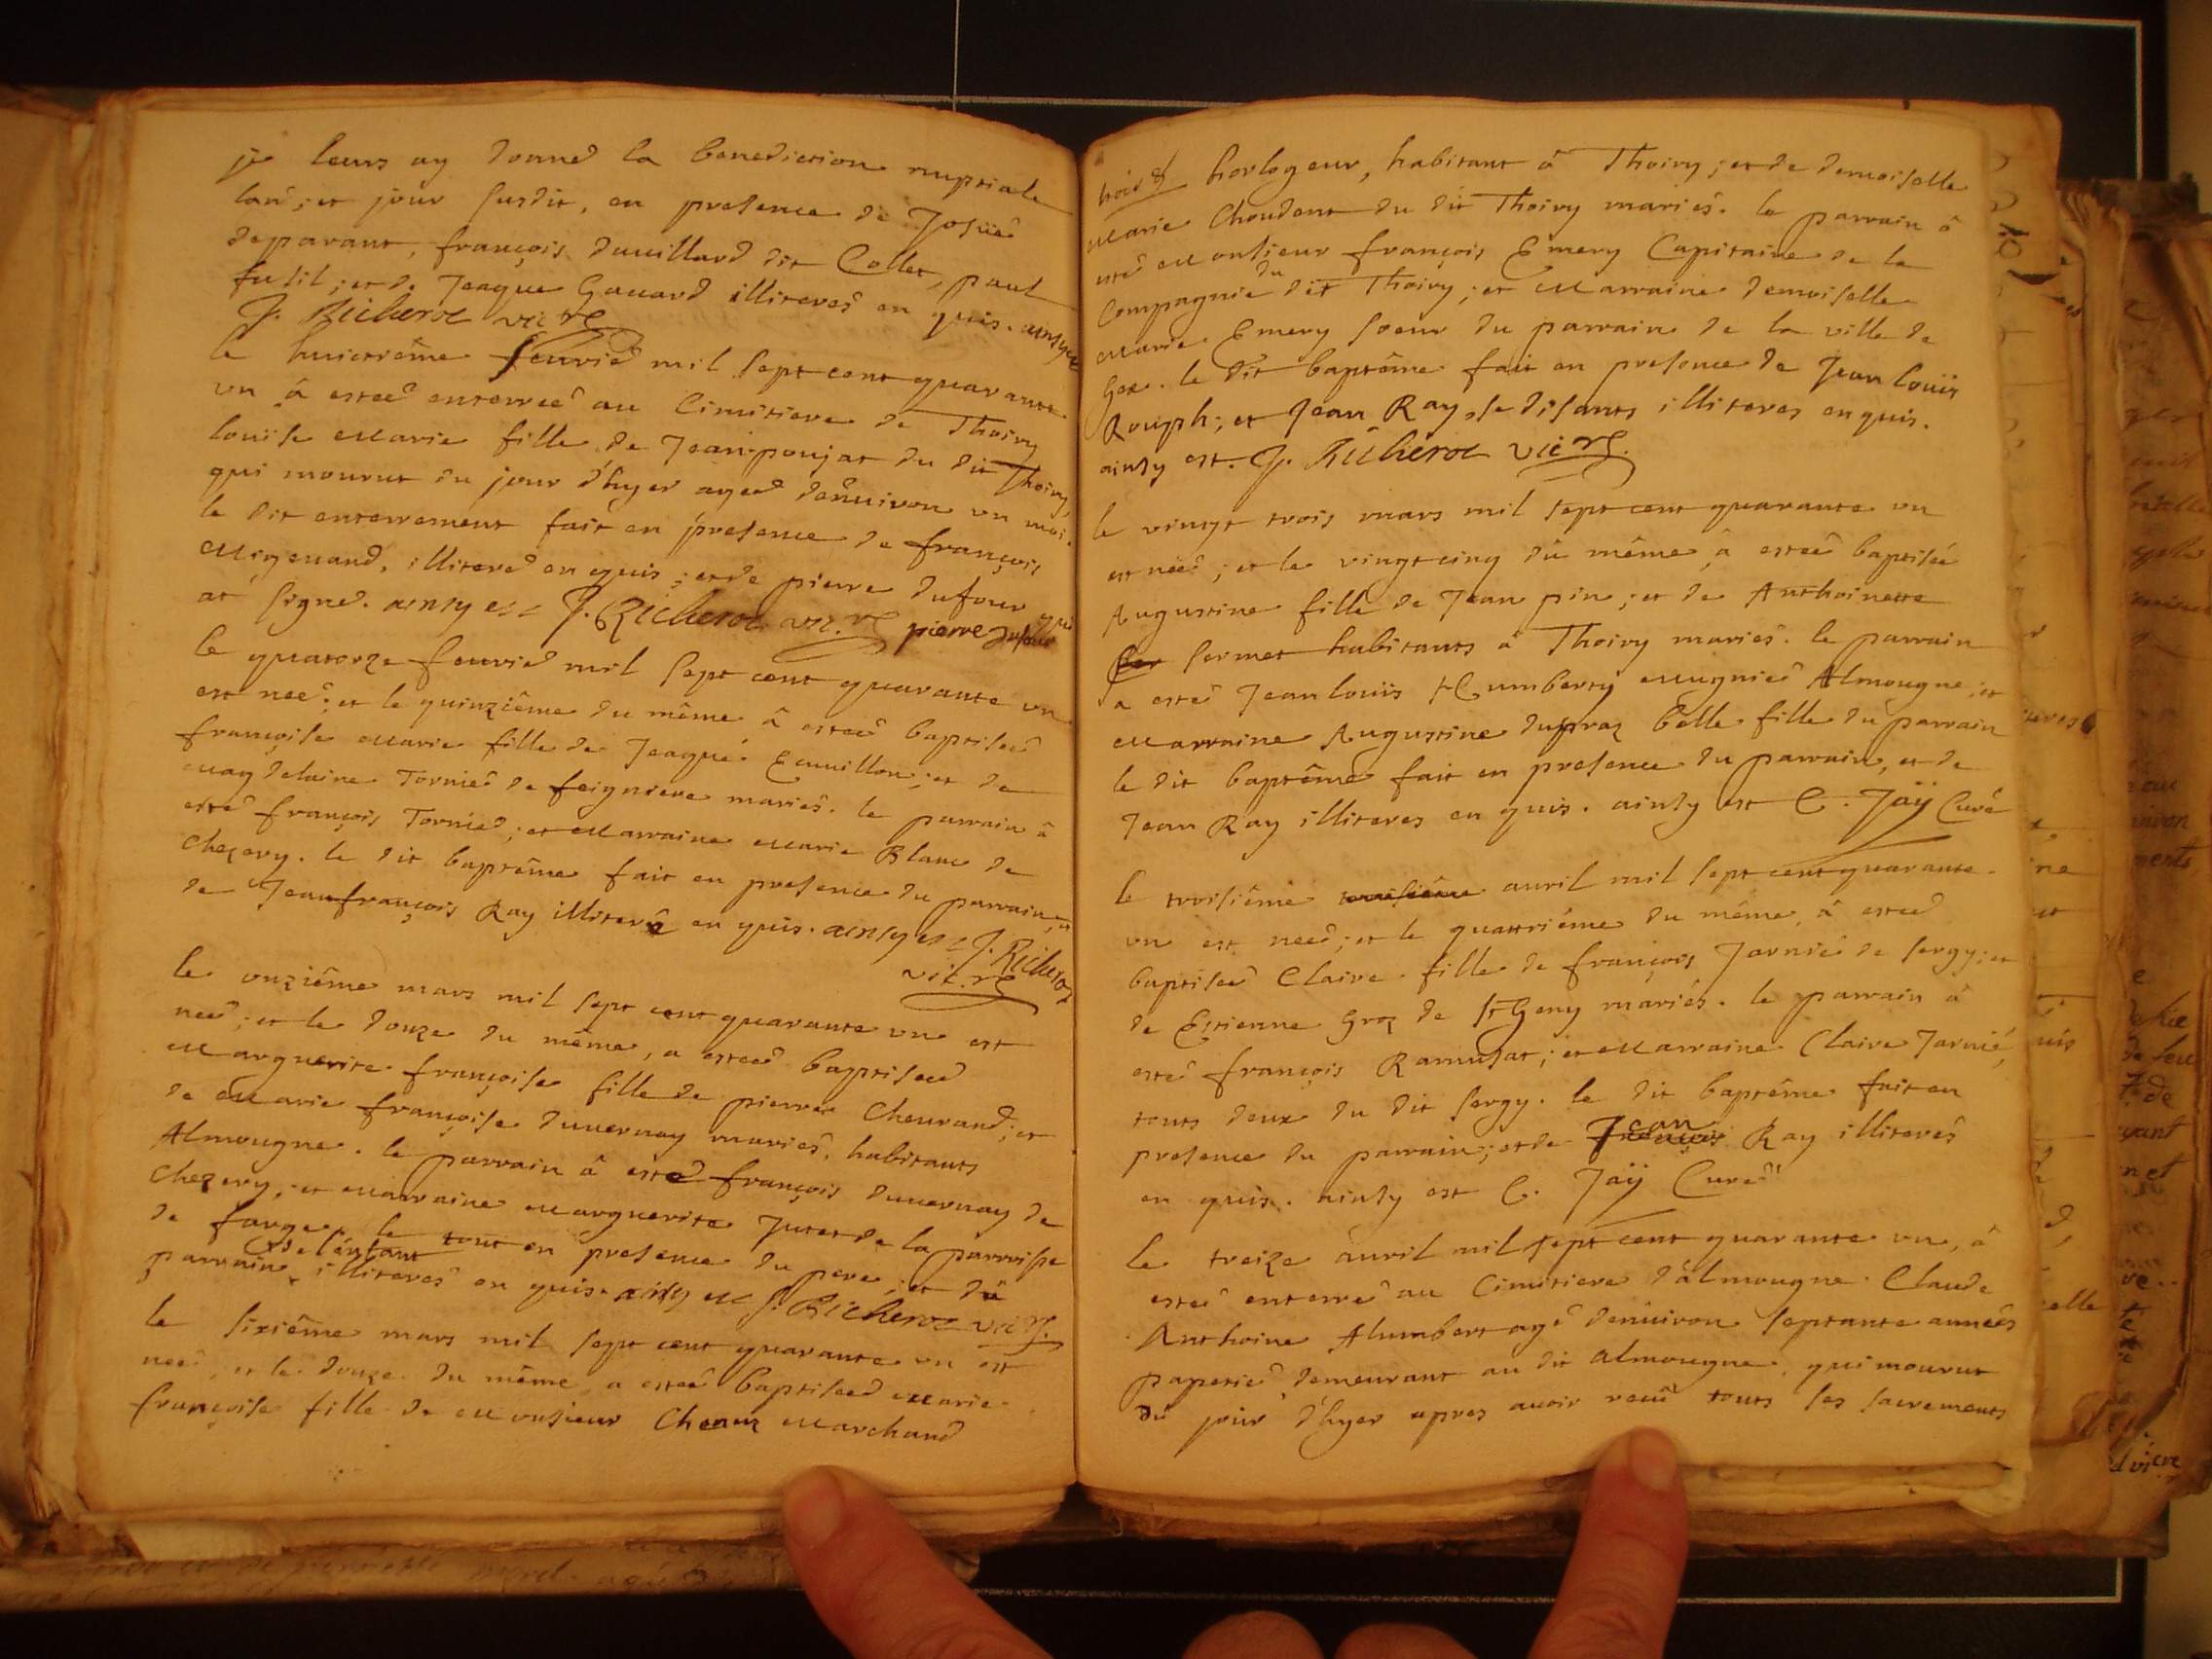 je leurs ay donné la benediction nuptiale
l'an; et jour susdit, en presence de Josüé
deparant, françois duuillard dit Collet, paul
fusil; et de Jeaque Gauard illiterés en quis. ainsy est
J. Richeroz vic.re
le huictiême feurié mil sept cent quarante
un â esteé enterreé au Cimitiere de Thoiry
louïse Marie fille de Jean poujat du dit Thoiry,
qui mourut du jour d'hyer ageé d'enuiron un moi.
le dit enterrement fait en presence de françois
Migenand, illiteré en quis; et de pierre dufour qui
at signé. ainsy est J. Richeroz vic.re pierre dufour
le quatorze feurié mil sept cent quarante un
est neé; et le quinziême du même â esteé baptiseé
françoise Marie fille de Jeaque Ecuuillon; et de
Magdelaine Tornié de feigniere mariés. le parrain â
esté françois Tornié; et Marraine Marie Blanc de
Chezery. le dit baptême fait en presence du parrain, et
de Jeanfrançois Ray illiterés en quis. ainsy est J. Richeroz
vic.re
le onziême mars mil sept cent quarante un est
neé; et le douze du même, a esteé baptiseé
Marguerite françoise fille de pierre Cheurand; et
de Marie françoise duuernay mariés, habitants
Almougne. le parrain â esté françois duuernay de
Chezery; et Marraine Marguerite Jutet de la parroisse
de farge, le tout en presence du pere; et du
parrain de l'enfant illiterés en quis. ainsy est J. Richeroz vic.re
le sixiême mars mil sept cent quarante un est
neé, et le douze du même a esteé baptiseé Marie
françoise fille de Monsieur Marchand
horlogeur, habitant â Thoiry; et de demoiselle
Marie Choudent du dit Thoiry mariés. le parrain â
esté Monsieur françois Emery Capitaine de la
Compagnie du dit Thoiry; et Marraine demoiselle
Marie Emery soeur du parrain de la ville de
Gex. le dit baptême fait en presence de Jean louis
Rouph; et Jean Ray, se disants illiteres en quis.
ainsy est. J. Richeroz vic.re
le vingt trois mars mil sept cent quarante un
est neé; et le vingtcinq du même â esteé baptisée
Augustine fille de Jean pin; et de Anthoinette
sermet habitants â Thoiry mariés. le parrain
a esté Jean louïs Humberty Mugnié Almougne; et
Marraine Augustine dupraz belle fille du parrain
le dit baptême fait en presence du parrain, et de
Jean Ray illiteres en quis. ainsy est C. Jaÿ Curé
le troisiême troisiême auril mil sept cent quarante
un est neé; et le quattriême du même, â esteé
baptiseé Claire fille de françois Jarnié de sergy; et
de Estienne Groz de St Geny mariés. le parrain â
esté françois Ramusat; et Marraine Claire Jarnié,
touts deux du dit sergy. le dit baptême fait en
presence du parrain; et de Jean Ray illiterés
en quis. ainsy est C. Jaÿ Curé
le treize auril mil sept cent quarante un, â
esté enterré au Cimitiere d'almougne Claude
Anthoine Alumbert agé d'enuiron septante années
papetié demeurant au dit almougne, qui mourut
du jour d'hyer apres auoir receu touts ses sacrements